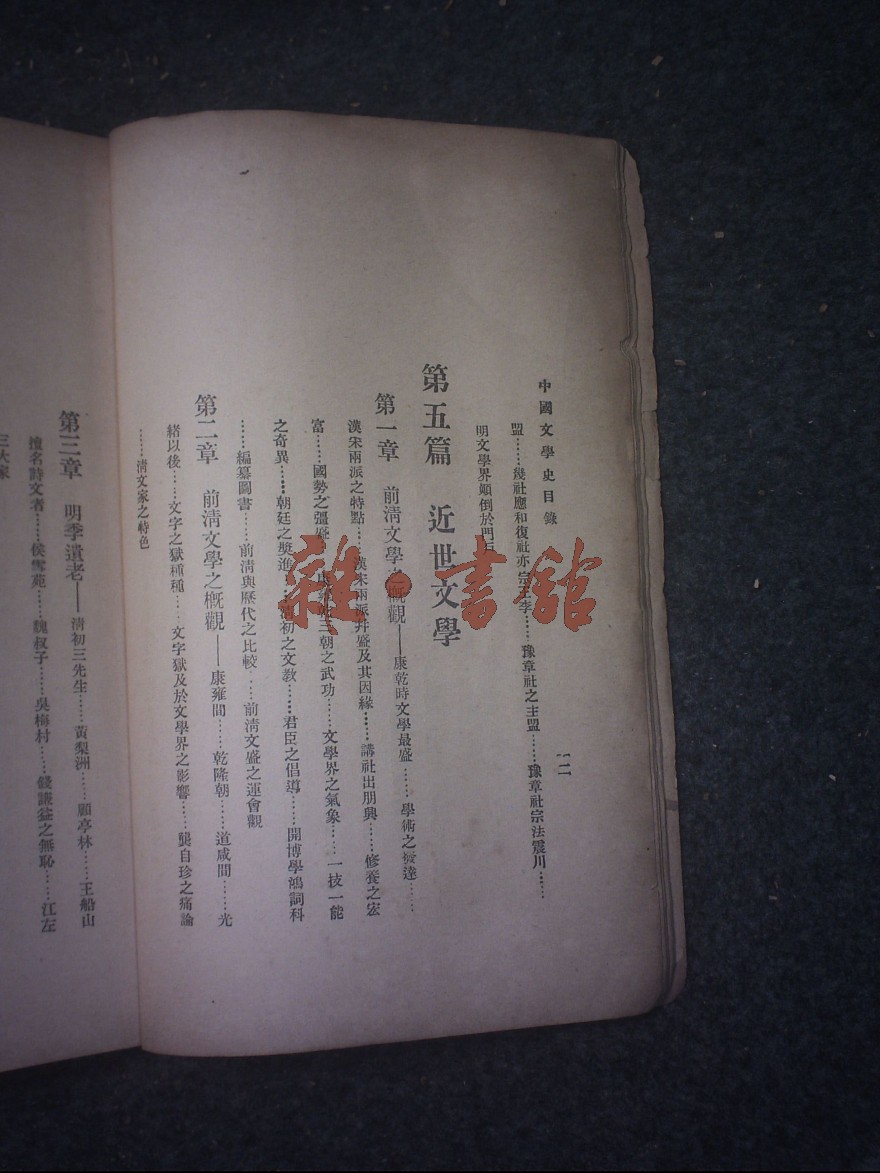 中國文學史目錄
一二
盟……幾社應和復社亦宗王李……豫章社之主盟……豫章社宗法震川……
明文學界顛倒於門戶
第五篇 近世文學
第一章 前清文學之概觀——康乾時文學最盛……學術之發達……
漢宋兩派之特點……漢宋兩派幷盛及其因緣……講社出朋興……修養之宏
富……國勢之彊盛……三朝之武功……文學界之氣象……一技一能
之奇異……朝廷之獎進……清初之文敎……君臣之倡導……開博學鴻詞科
……編纂圖書……前清與歷代之比較……前清文盛之運會觀
第二章 前清文學之概觀——康雍間……乾隆朝……道咸間……光
緒以後……文字之獄種種……文字獄及於文學界之影響……龔自珍之痛論
……清文家之特色
第三章 明季遺老——清初三先生……黃梨洲……顧亭林……王船山
擅名詩文者……侯雪苑……魏叔子……吳梅村……錢謙益之無恥……江左
三大家
雜·書館